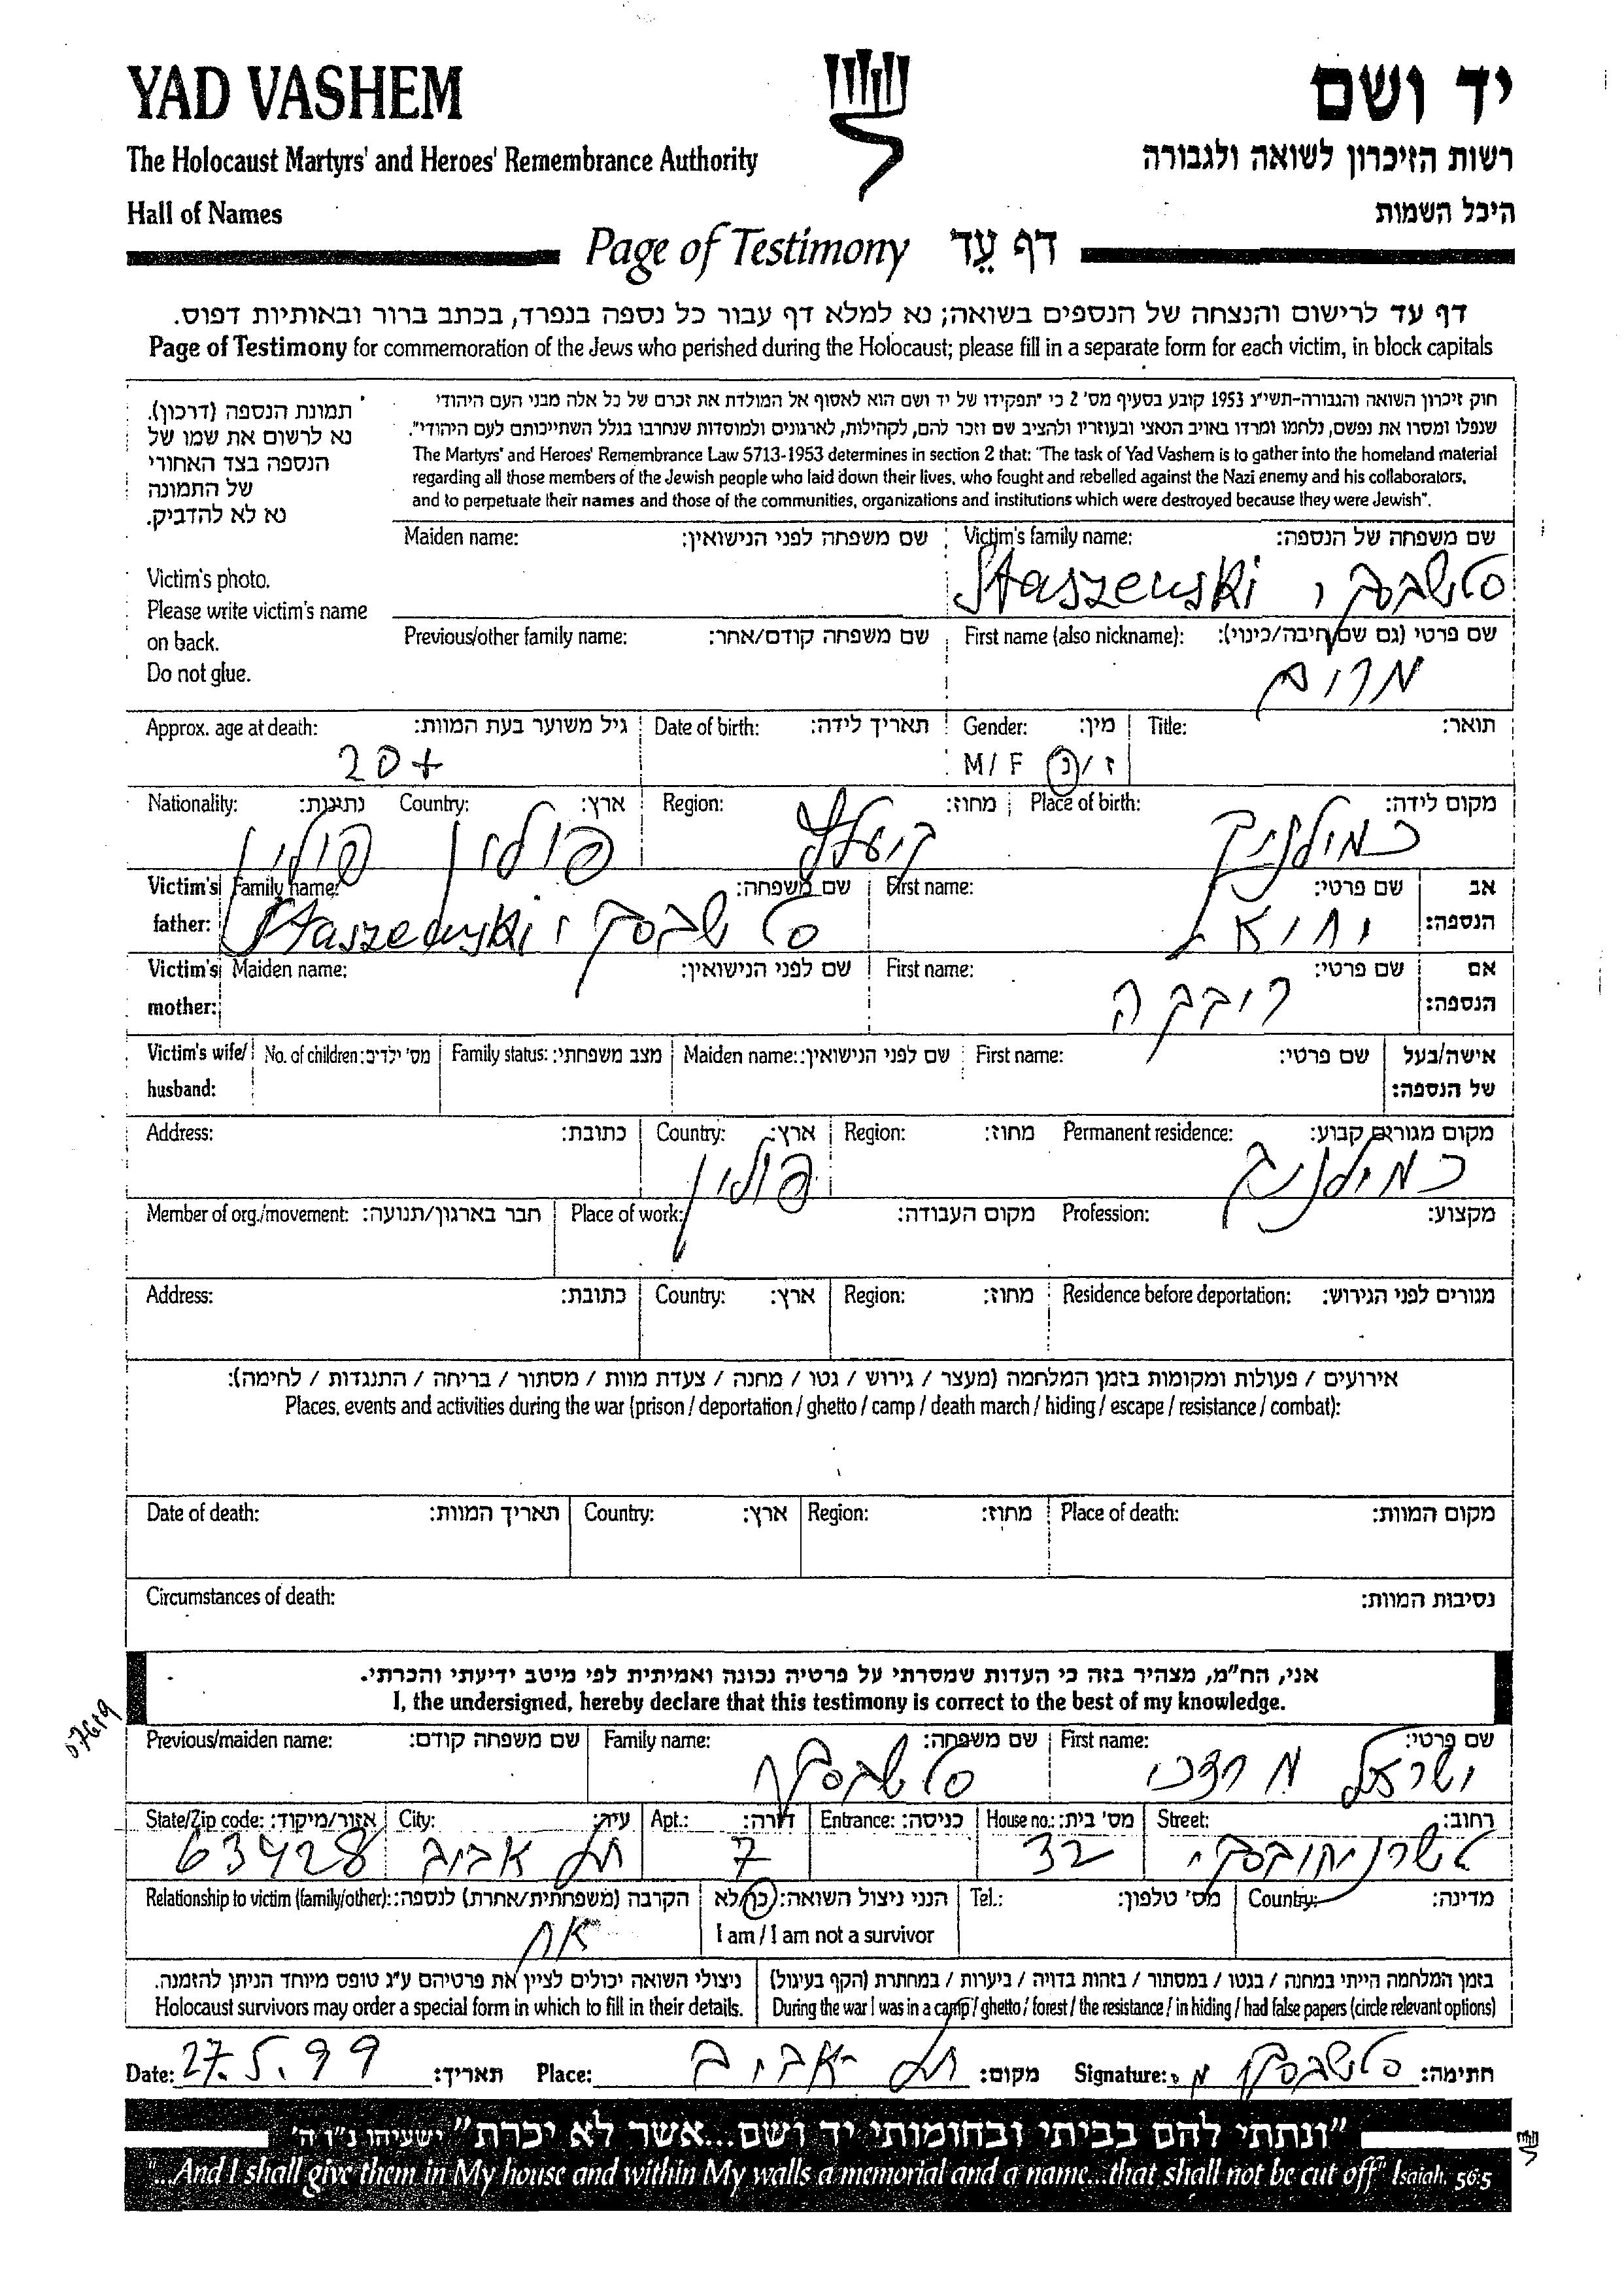 YAD VASHEM
יד ושם
The Holocaust Martyrs' and Heroes' Remembrance Authority
רשות הזיכרון לשואה ולגבורה
Hall of Names
היכל השמות
Page of Testimony דף עֵד
דף עד לרישום והנצחה של הנספים בשואה; נא למלא דף עבור כל נספה בנפרד, בכתב ברור ובאותיות דפוס.
Page of Testimony for commemoration of the Jews who perished during the Holocaust; please fill in a separate form for each victim, in block capitals
תמונת הנספה (דרכון).
נא לרשום את שמו של
הנספה בצד האחורי
של התמונה
נא לא להדביק.
חוק זיכרון השואה והגבורה-תשי"ג 1953 קובע בסעיף מס' 2 כי "תפקידו של יד ושם הוא לאסוף אל המולדת את זכרם של כל אלה מבני העם היהודי
שנפלו ומסרו את נפשם, נלחמו ומרדו באויב הנאצי ובעוזריו ולהציב שם וזכר להם, לקהילות, לארגונים ולמוסדות שנחרבו בגלל השתייכותם לעם היהודי".
The Martyrs' and Heroes' Remembrance Law 5713-1953 determines in section 2 that: "The task of Yad Vashem is to gather into the homeland material
regarding all those members of the Jewish people who laid down their lives, who fought and rebelled against the Nazi enemy and his collaborators,
and to perpetuate their names and those of the communities, organizations and institutions which were destroyed because they were Jewish".
Victim's photo.
Please write victim's name
on back.
Do not glue.
Maiden name: שם משפחה לפני הנישואין: Victim's family name: שם משפחה של הנספה:
Staszewski סטשבסקי
Previous/other family name: שם משפחה קודם/אחר: First name (also nickname): שם פרטי (גם שם חיבה/כינוי):
מרים
Approx. age at death: גיל משוער בעת המוות: Date of birth: תאריך לידה: Gender: מין: Title: תואר:
20+ M/F ז/נ
Nationality: נתינות: Country: ארץ: Region: מחוז: Place of birth: מקום לידה:
פולין פולין קיעלץ כמילניק
Victim's father: Family name: שם משפחה: First name: שם פרטי: אב הנספה:
Staszewski סטשבסקי
Victim's mother: Maiden name: שם לפני הנישואין: First name: שם פרטי: אם הנספה:
רובקה
Victim's wife/ husband: No. of children: מס' ילדים: Family status: מצב משפחתי: Maiden name: שם לפני הנישואין: First name: שם פרטי: אישה/בעל של הנספה:
Address: כתובת: Country: ארץ: Region: מחוז: Permanent residence: מקום מגורים קבוע:
פולין כמילניק
Member of org./movement: חבר בארגון/תנועה: Place of work: מקום העבודה: Profession: מקצוע:
Address: כתובת: Country: ארץ: Region: מחוז: Residence before deportation: מגורים לפני הגירוש:
אירועים / פעולות ומקומות בזמן המלחמה (מעצר / גירוש / גטו / מחנה / צעדת מוות / מסתור / בריחה / התנגדות / לחימה):
Places, events and activities during the war (prison / deportation / ghetto / camp / death march / hiding / escape / resistance / combat):
Date of death: תאריך המוות: Country: ארץ: Region: מחוז: Place of death: מקום המוות:
Circumstances of death: נסיבות המוות:
אני, הח"מ, מצהיר בזה כי העדות שמסרתי על פרטיה נכונה ואמיתית לפי מיטב ידיעתי והכרתי.
I, the undersigned, hereby declare that this testimony is correct to the best of my knowledge.
Previous/maiden name: שם משפחה קודם: Family name: שם משפחה: First name: שם פרטי:
סטשבסקי ישראל מרדכי
State/Zip code: אזור/מיקוד: City: עיר: Apt.: דירה: Entrance: כניסה: House no.: מס' בית: Street: רחוב:
63428 תל אביב 7 32 טשרניחובסקי
Relationship to victim (family/other): הקרבה (משפחתית/אחרת) לנספה: הנני ניצול השואה: כן/לא Tel.: מס' טלפון: Country: מדינה:
אח I am / I am not a survivor
ניצולי השואה יכולים לציין את פרטיהם ע"ג טופס מיוחד הניתן להזמנה.
Holocaust survivors may order a special form in which to fill in their details.
בזמן המלחמה הייתי במחנה / בגטו / במסתור / בזהות בדויה / ביערות / במחתרת (הקף בעיגול)
During the war I was in a camp / ghetto / forest / the resistance / in hiding / had false papers (circle relevant options)
Date: 27.5.99 תאריך: Place: תל-אביב מקום: Signature: סטשבסקי מ. חתימה:
"ונתתי להם בביתי ובחומותי יד ושם...אשר לא יכרת" ישעיהו נ"ו ה'
"...And I shall give them in My house and within My walls a memorial and a name...that shall not be cut off" Isaiah, 56:5